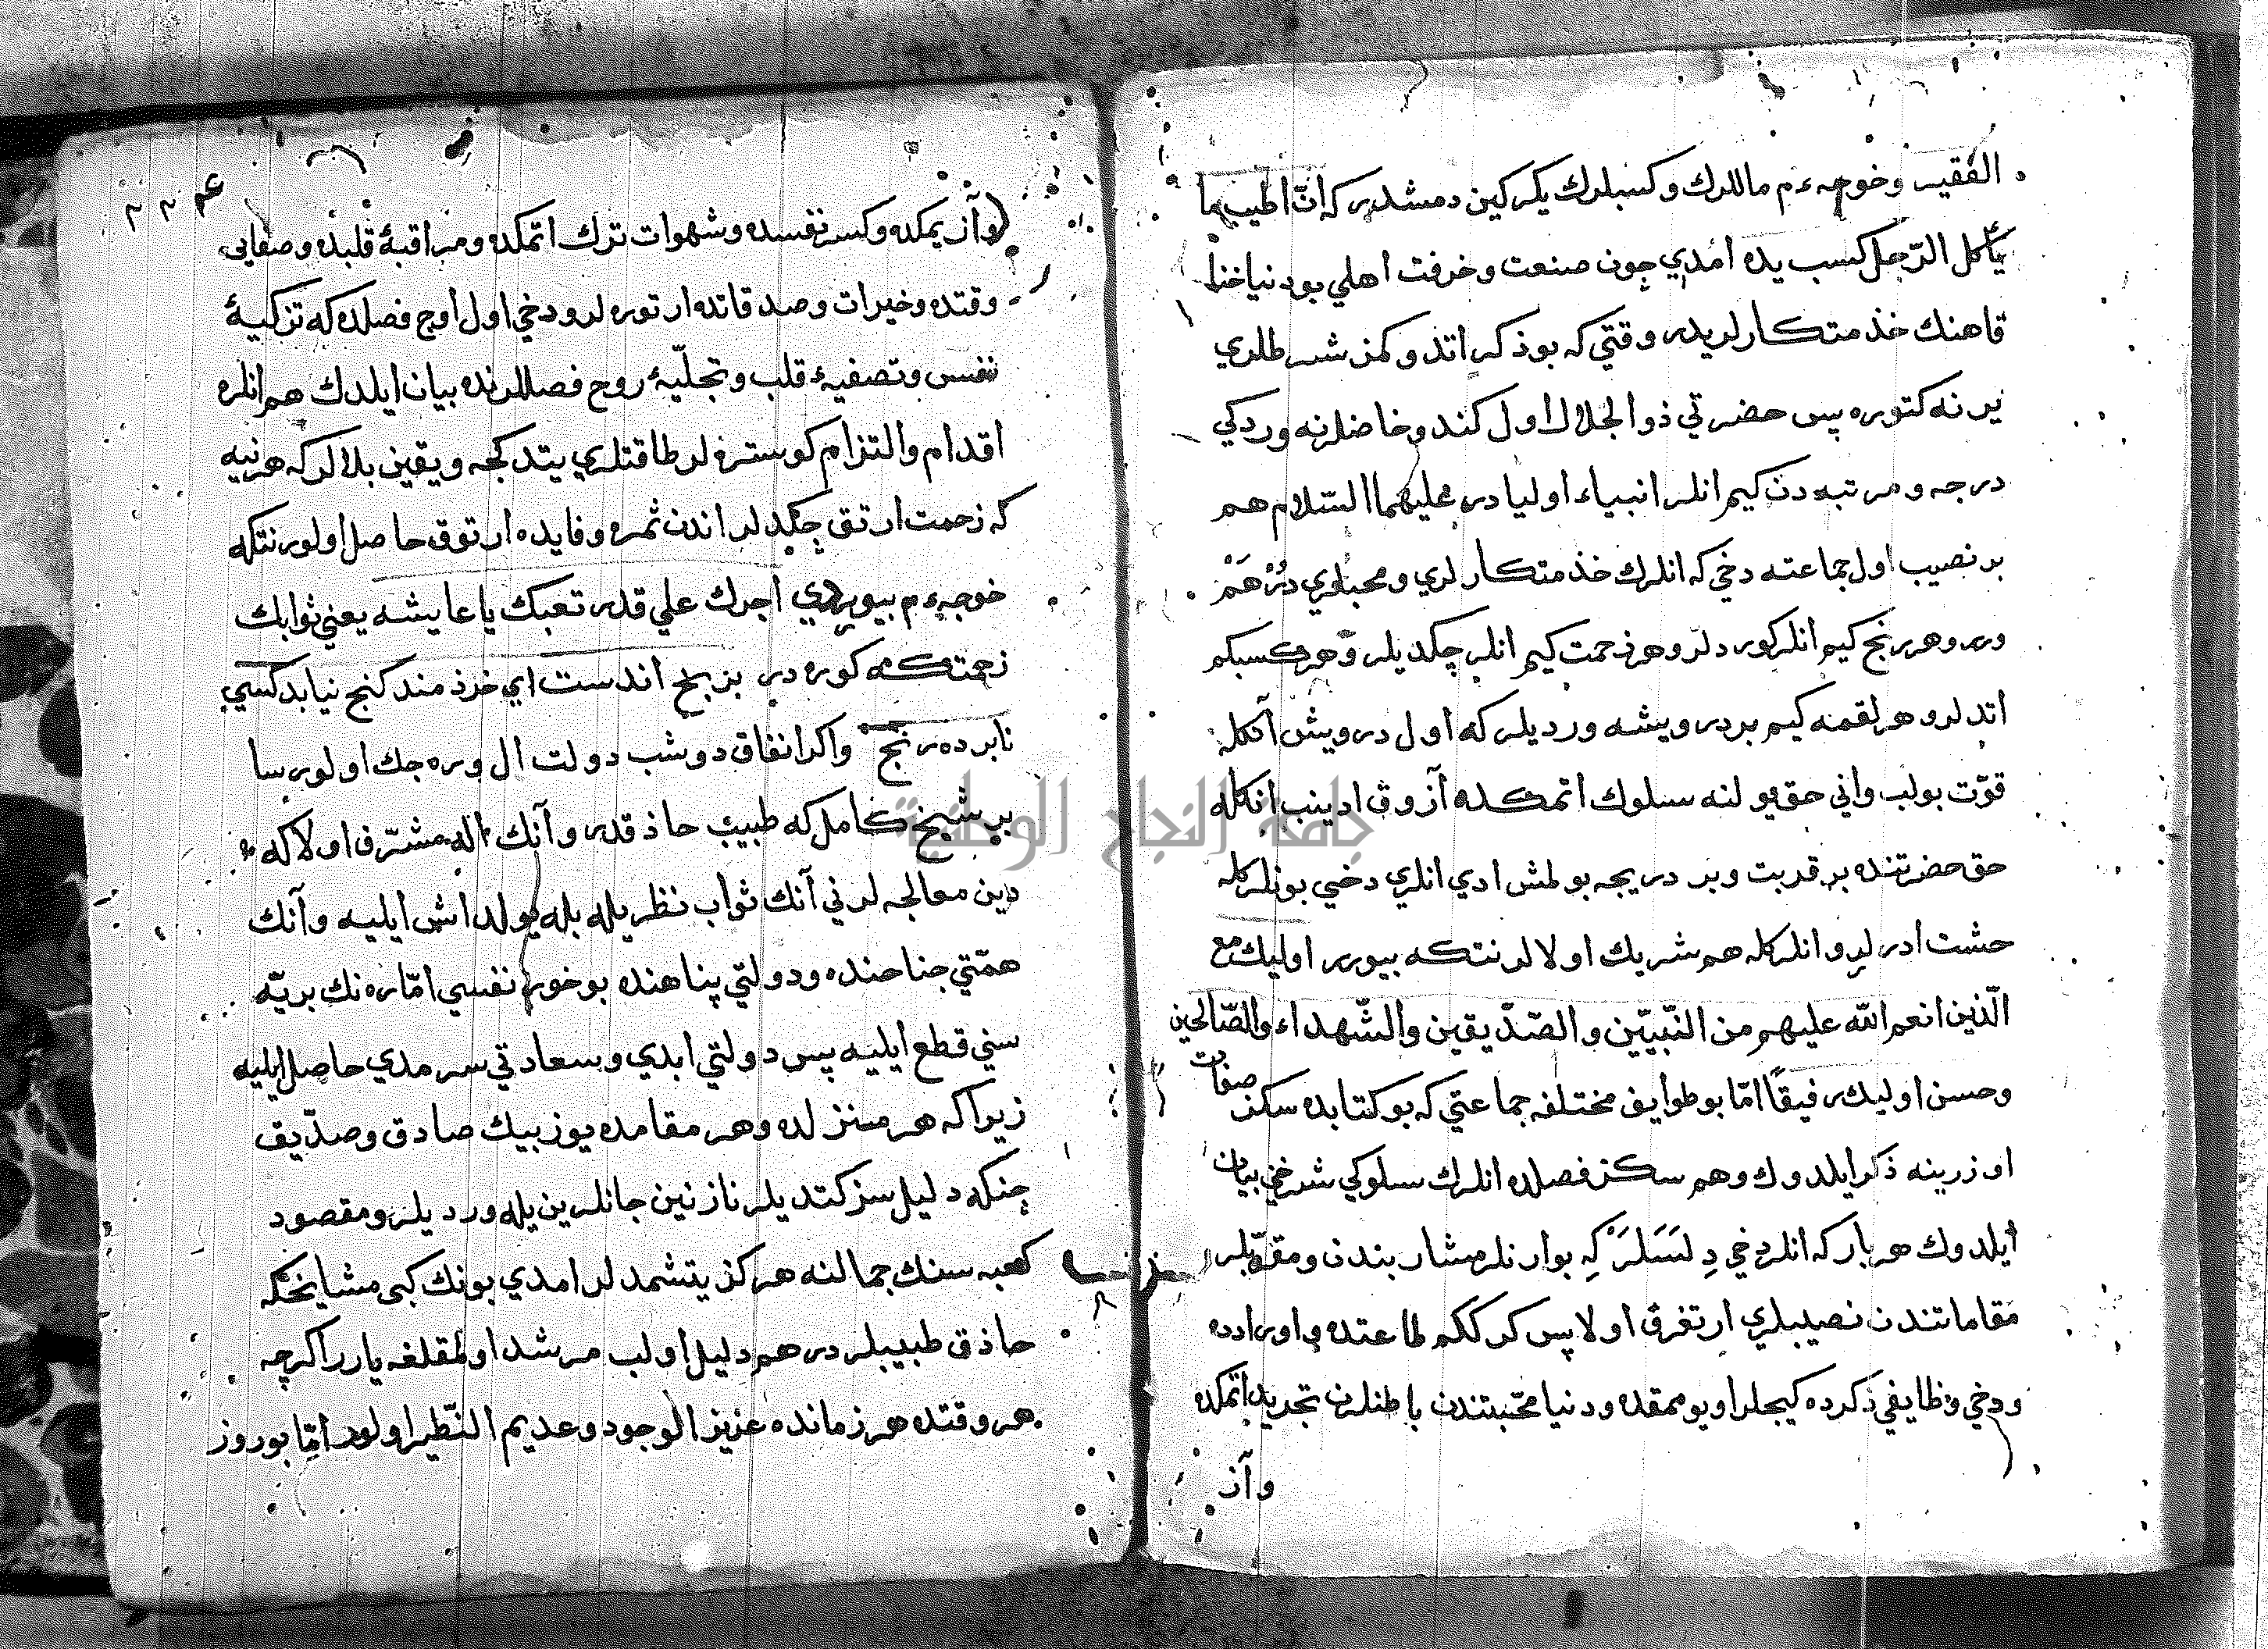 الفقير وخوجه ءم ماللرك وكسبلرك يكركين دمشدر كه انّ اطيب ما
يأكل الرّجل كسب يده امدي چون صنعت وخرفت اهلي بو دنيا خنا
قاهنك خذمتكارلريدر وقتي كه بو ذكر اتدوكمز شرطلري
يرنه كتوره پس حضرتي ذو الجلال اول كندو خاضلرنه وردكي
درجه ومرتبه دن كيم انلر انبياء اوليا در عليهما السّلام هم
بر نصيب اول جماعته دخي كه انلرك خذمتكارلري ومحبلري درر هم
ورر وهر رنج كيم انلر كوردلر وهر زحمت كيم انلر چكديلر وهر كسبكم
اتدلر وهر لقمه كيم بر درويشه ورديلر كه اول درويش آنكله
قوّت بولب واني حق يولنه سلوك اتمكده آزوق ادينب انكله
حق حضرتنده بر قربت وبر دريجه بولمش ادي انلري دخي بونلركله
حشت ادرلر وانلركله هم شريك اولالر نتكه بيورر اوليك مع
الّذين انعم اللّه عليهم من النّبيّين والصّدّيقين والشّهداء والصّالحين
وحسن اوليك رفيقًا امّا بو طوايف مختلفه جماعتي كه بو كتابده سكز صفات
اوزرينه ذكر ايلدوك وهم سكز فصلده انلرك سلوكي شرخي بيان
ايلدوك هر بار كه انلر دخي دلسلر كه بو ارنلر مشاربندن ومقرّبلر
مقاماتندن نصيبلري ارتغرق اولا پس كركلكم طاعتده واورادده
ودخي وظايفي ذكرده كيجلر اويومقده ودنيا محبّتندن باطنلرن تجريد اتمكده
وآز
وآز يمكده وكسر نفسده وشهوات ترك اتمكده ومراقبۀ قلبده وصفايي
وقتده وخيرات وصدقاتده ارتوره لر ودخي اول اوج فصلده كه تزكيۀ
نفس وتصفيۀ قلب وتجلّيۀ روح فصللرنده بيان ايلدك هم انلره
اقدام والتزام كوستره لر طاقتلري يتدكجه ويقين بلالر كه هر نيه
كه زحمت ارتق چكدلر اندن ثمره وفايده ارتوق حاصل اولور نتكه
خوجه ءم بيوردي اجرك علي قدر تعبك يا عايشه يعني ثوابك
زحمتكه كوره در بز بخ اندست اي خرذمند كنج نيابد كسي
نابرده رنج واكر انفاق دوشب دولت ال وره جك اولورسا
بر شيخ كامل كه طبيب حاذقدر وآنك اله مشرّف اولا كه
دين معالجه لرني آنك ثواب نظريله بله يولداش ايليه وآنك
همّتي جناحنده ودولتي پناهنده بو خور نفسي امّاره نك بريّه
سني قطع ايليه پس دولتي ابدي وسعادتي سرمدي حاصل ايليه
زيرا كه هر منزلده وهر مقامده يوز بيك صادق وصدّيق
چنكه دليل سز كتديلر نازنين جانلرين يله ورديلر ومقصود
كعبه سنك جمالنه هركز يتشمدلر امدي بونك كبي مشايخكه
حاذق طبيبلردر هم دليل اولب مرشد اولمقلغه يارر اكرچه
هر وقتده هر زمانده عزيز الوجود وعديم النّظير اولور امّا بو روز